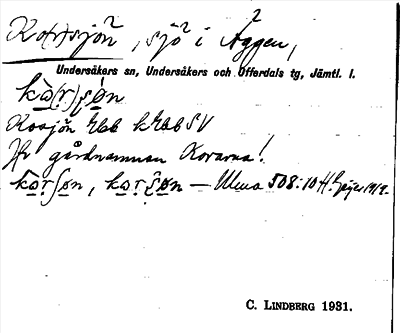 Ko(r)sjön, sjö i Åggen,
Undersåkers sn, Undersåkers och Offerdals tg, Jämtl. l.
kò̱(r̤)ʂø̱n
Kosjön Ekb kEkb SV
Jfr gårdnamnen Korarna!
ko̱r̤ʃøn, ko̱r̤ʂø̱n — Ulma 508:10 H. Geijer 1919.
C. LINDBERG 1931.